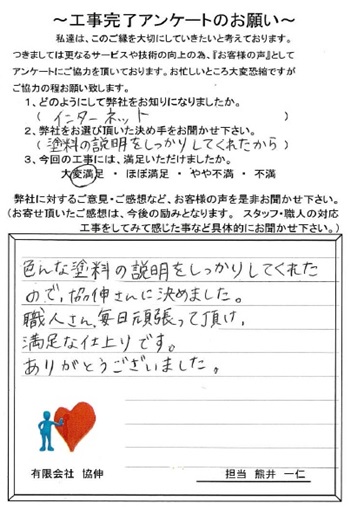 ～工事完了アンケートのお願い～
私達は、このご縁を大切にしていきたいと考えております。
つきましては更なるサービスや技術の向上の為、『お客様の声』として
アンケートにご協力を頂いております。お忙しいところ大変恐縮ですが
ご協力の程お願い致します。
1、どのようにして弊社をお知りになりましたか。
（インターネット）
2、弊社をお選び頂いた決め手をお聞かせ下さい。
（塗料の説明をしっかりしてくれたから）
3、今回の工事には、満足いただけましたか。
大変満足 ・ ほぼ満足 ・ やや不満 ・ 不満
弊社に対するご意見・ご感想など、お客様の声を是非お聞かせ下さい。
（お寄せ頂いたご感想は、今後の励みとなります。 スタッフ・職人の対応
工事をしてみて感じた事など具体的にお聞かせ下さい。）
色んな塗料の説明をしっかりしてくれた
ので、協伸さんに決めました。
職人さん、毎日頑張って頂け、
満足な仕上りです。
ありがとうございました。
有限会社 協伸
担当 熊井 一仁